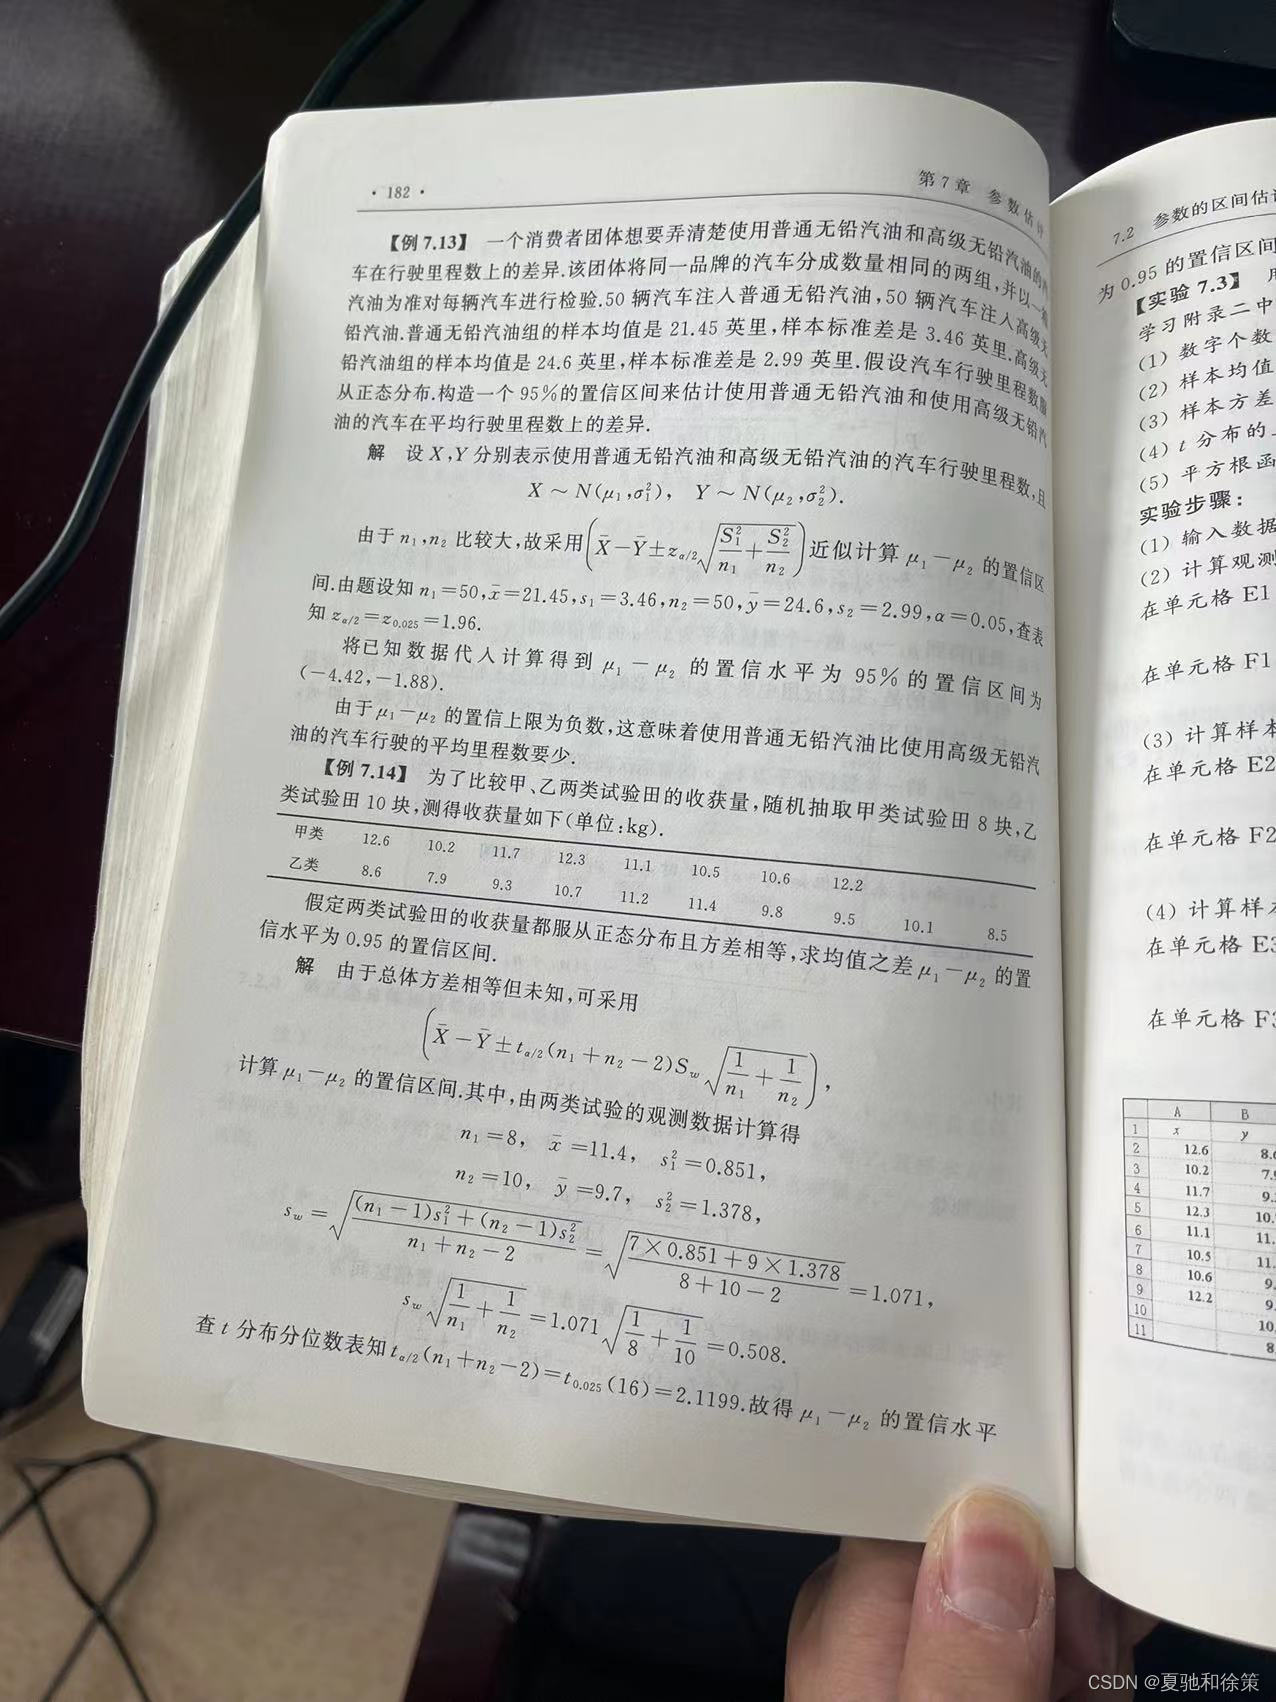 · 182 ·
第 7 章 参数估计
【例 7.13】 一个消费者团体想要弄清楚使用普通无铅汽油和高级无铅汽油的汽
车在行驶里程数上的差异.该团体将同一品牌的汽车分成数量相同的两组,并以一箱
汽油为准对每辆汽车进行检验.50 辆汽车注入普通无铅汽油,50 辆汽车注入高级无
铅汽油.普通无铅汽油组的样本均值是 21.45 英里,样本标准差是 3.46 英里.高级无
铅汽油组的样本均值是 24.6 英里,样本标准差是 2.99 英里.假设汽车行驶里程数服
从正态分布.构造一个 95%的置信区间来估计使用普通无铅汽油和使用高级无铅汽
油的汽车在平均行驶里程数上的差异.
解 设 X,Y 分别表示使用普通无铅汽油和高级无铅汽油的汽车行驶里程数,且
X ~ N(μ₁,σ₁²), Y ~ N(μ₂,σ₂²).
由于 n₁,n₂ 比较大,故采用(X̄−Ȳ±z_{α/2}√(S₁²/n₁+S₂²/n₂))近似计算 μ₁−μ₂ 的置信区
间.由题设知 n₁=50,x̄=21.45,s₁=3.46,n₂=50,ȳ=24.6,s₂=2.99,α=0.05,查表
知 z_{α/2}=z_{0.025}=1.96.
将已知数据代入计算得到 μ₁−μ₂ 的置信水平为 95%的置信区间为
(−4.42,−1.88).
由于 μ₁−μ₂ 的置信上限为负数,这意味着使用普通无铅汽油比使用高级无铅汽
油的汽车行驶的平均里程数要少.
【例 7.14】 为了比较甲、乙两类试验田的收获量,随机抽取甲类试验田 8 块,乙
类试验田 10 块,测得收获量如下(单位:kg).
甲类 12.6 10.2 11.7 12.3 11.1 10.5 10.6 12.2
乙类 8.6 7.9 9.3 10.7 11.2 11.4 9.8 9.5 10.1 8.5
假定两类试验田的收获量都服从正态分布且方差相等,求均值之差 μ₁−μ₂ 的置
信水平为 0.95 的置信区间.
解 由于总体方差相等但未知,可采用
(X̄−Ȳ±t_{α/2}(n₁+n₂−2)S_w√(1/n₁+1/n₂)),
计算 μ₁−μ₂ 的置信区间.其中,由两类试验的观测数据计算得
n₁=8, x̄=11.4, s₁²=0.851,
n₂=10, ȳ=9.7, s₂²=1.378,
s_w=√(((n₁−1)s₁²+(n₂−1)s₂²)/(n₁+n₂−2))=√((7×0.851+9×1.378)/(8+10−2))=1.071,
s_w√(1/n₁+1/n₂)=1.071√(1/8+1/10)=0.508.
查 t 分布分位数表知 t_{α/2}(n₁+n₂−2)=t_{0.025}(16)=2.1199.故得 μ₁−μ₂ 的置信水平
7.2 参数的区间估计
为 0.95 的置信区间
【实验 7.3】
学习附录二中
(1) 数字个数
(2) 样本均值
(3) 样本方差
(4) t 分布的
(5) 平方根函
实验步骤:
(1) 输入数据
(2) 计算观测
在单元格 E1
在单元格 F1
(3) 计算样本
在单元格 E2
在单元格 F2
(4) 计算样本
在单元格 E3
在单元格 F3
A B
1 x y
2 12.6
3 10.2
4 11.7
5 12.3
6 11.1
7 10.5
8 10.6
9 12.2
10
11
CSDN @夏驰和徐策